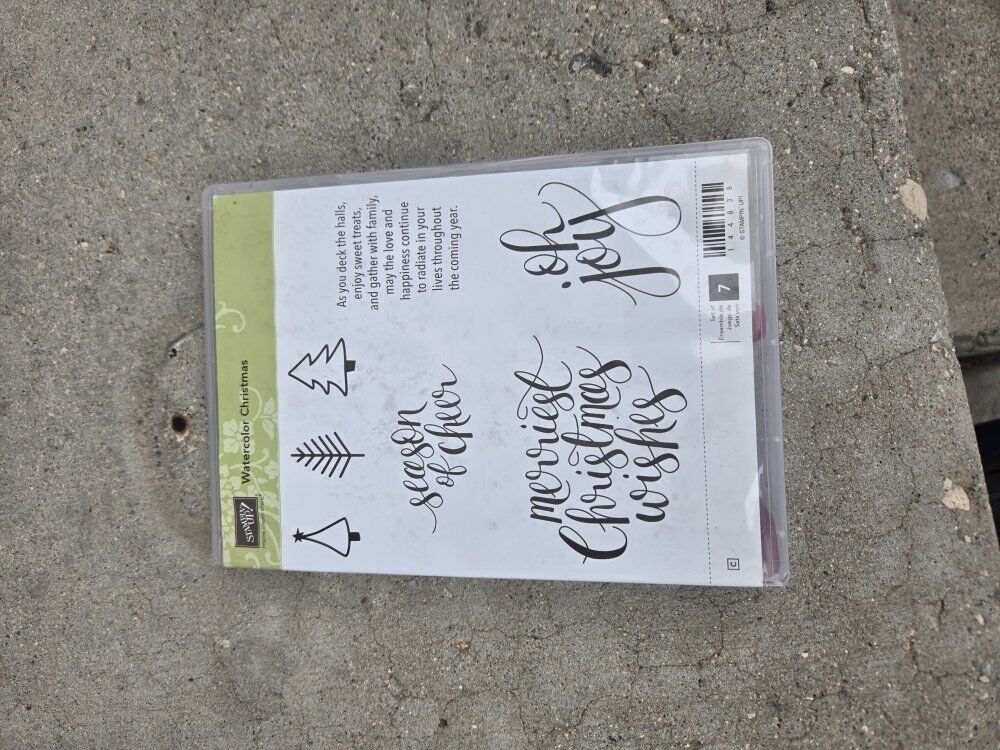 STAMPIN' UP!
Watercolor Christmas
As you deck the halls,
enjoy sweet treats,
and gather with family,
may the love and
happiness continue
to radiate in your
lives throughout
the coming year.
season
of cheer
oh
joy
merriest
Christmas
wishes
C
Set of
Ensemble de
Juego de
Satz von
7
1 4 4 8 3 8
© STAMPIN' UP!